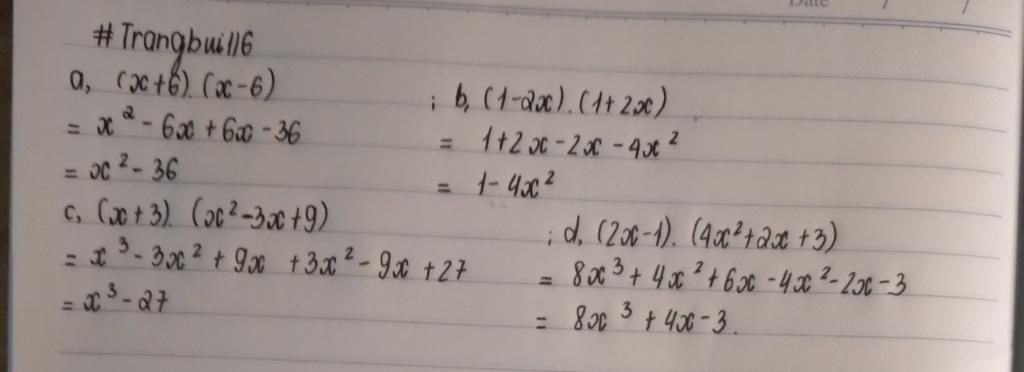 Date / /
#Trangbui116
a, (x+6).(x-6)
= x² - 6x + 6x - 36
= x² - 36
; b, (1-2x).(1+2x)
= 1+2x-2x-4x²
= 1-4x²
c, (x+3).(x²-3x+9)
= x³-3x²+9x+3x²-9x+27
= x³-27
; d, (2x-1).(4x²+2x+3)
= 8x³+4x²+6x-4x²-2x-3
= 8x³+4x-3.